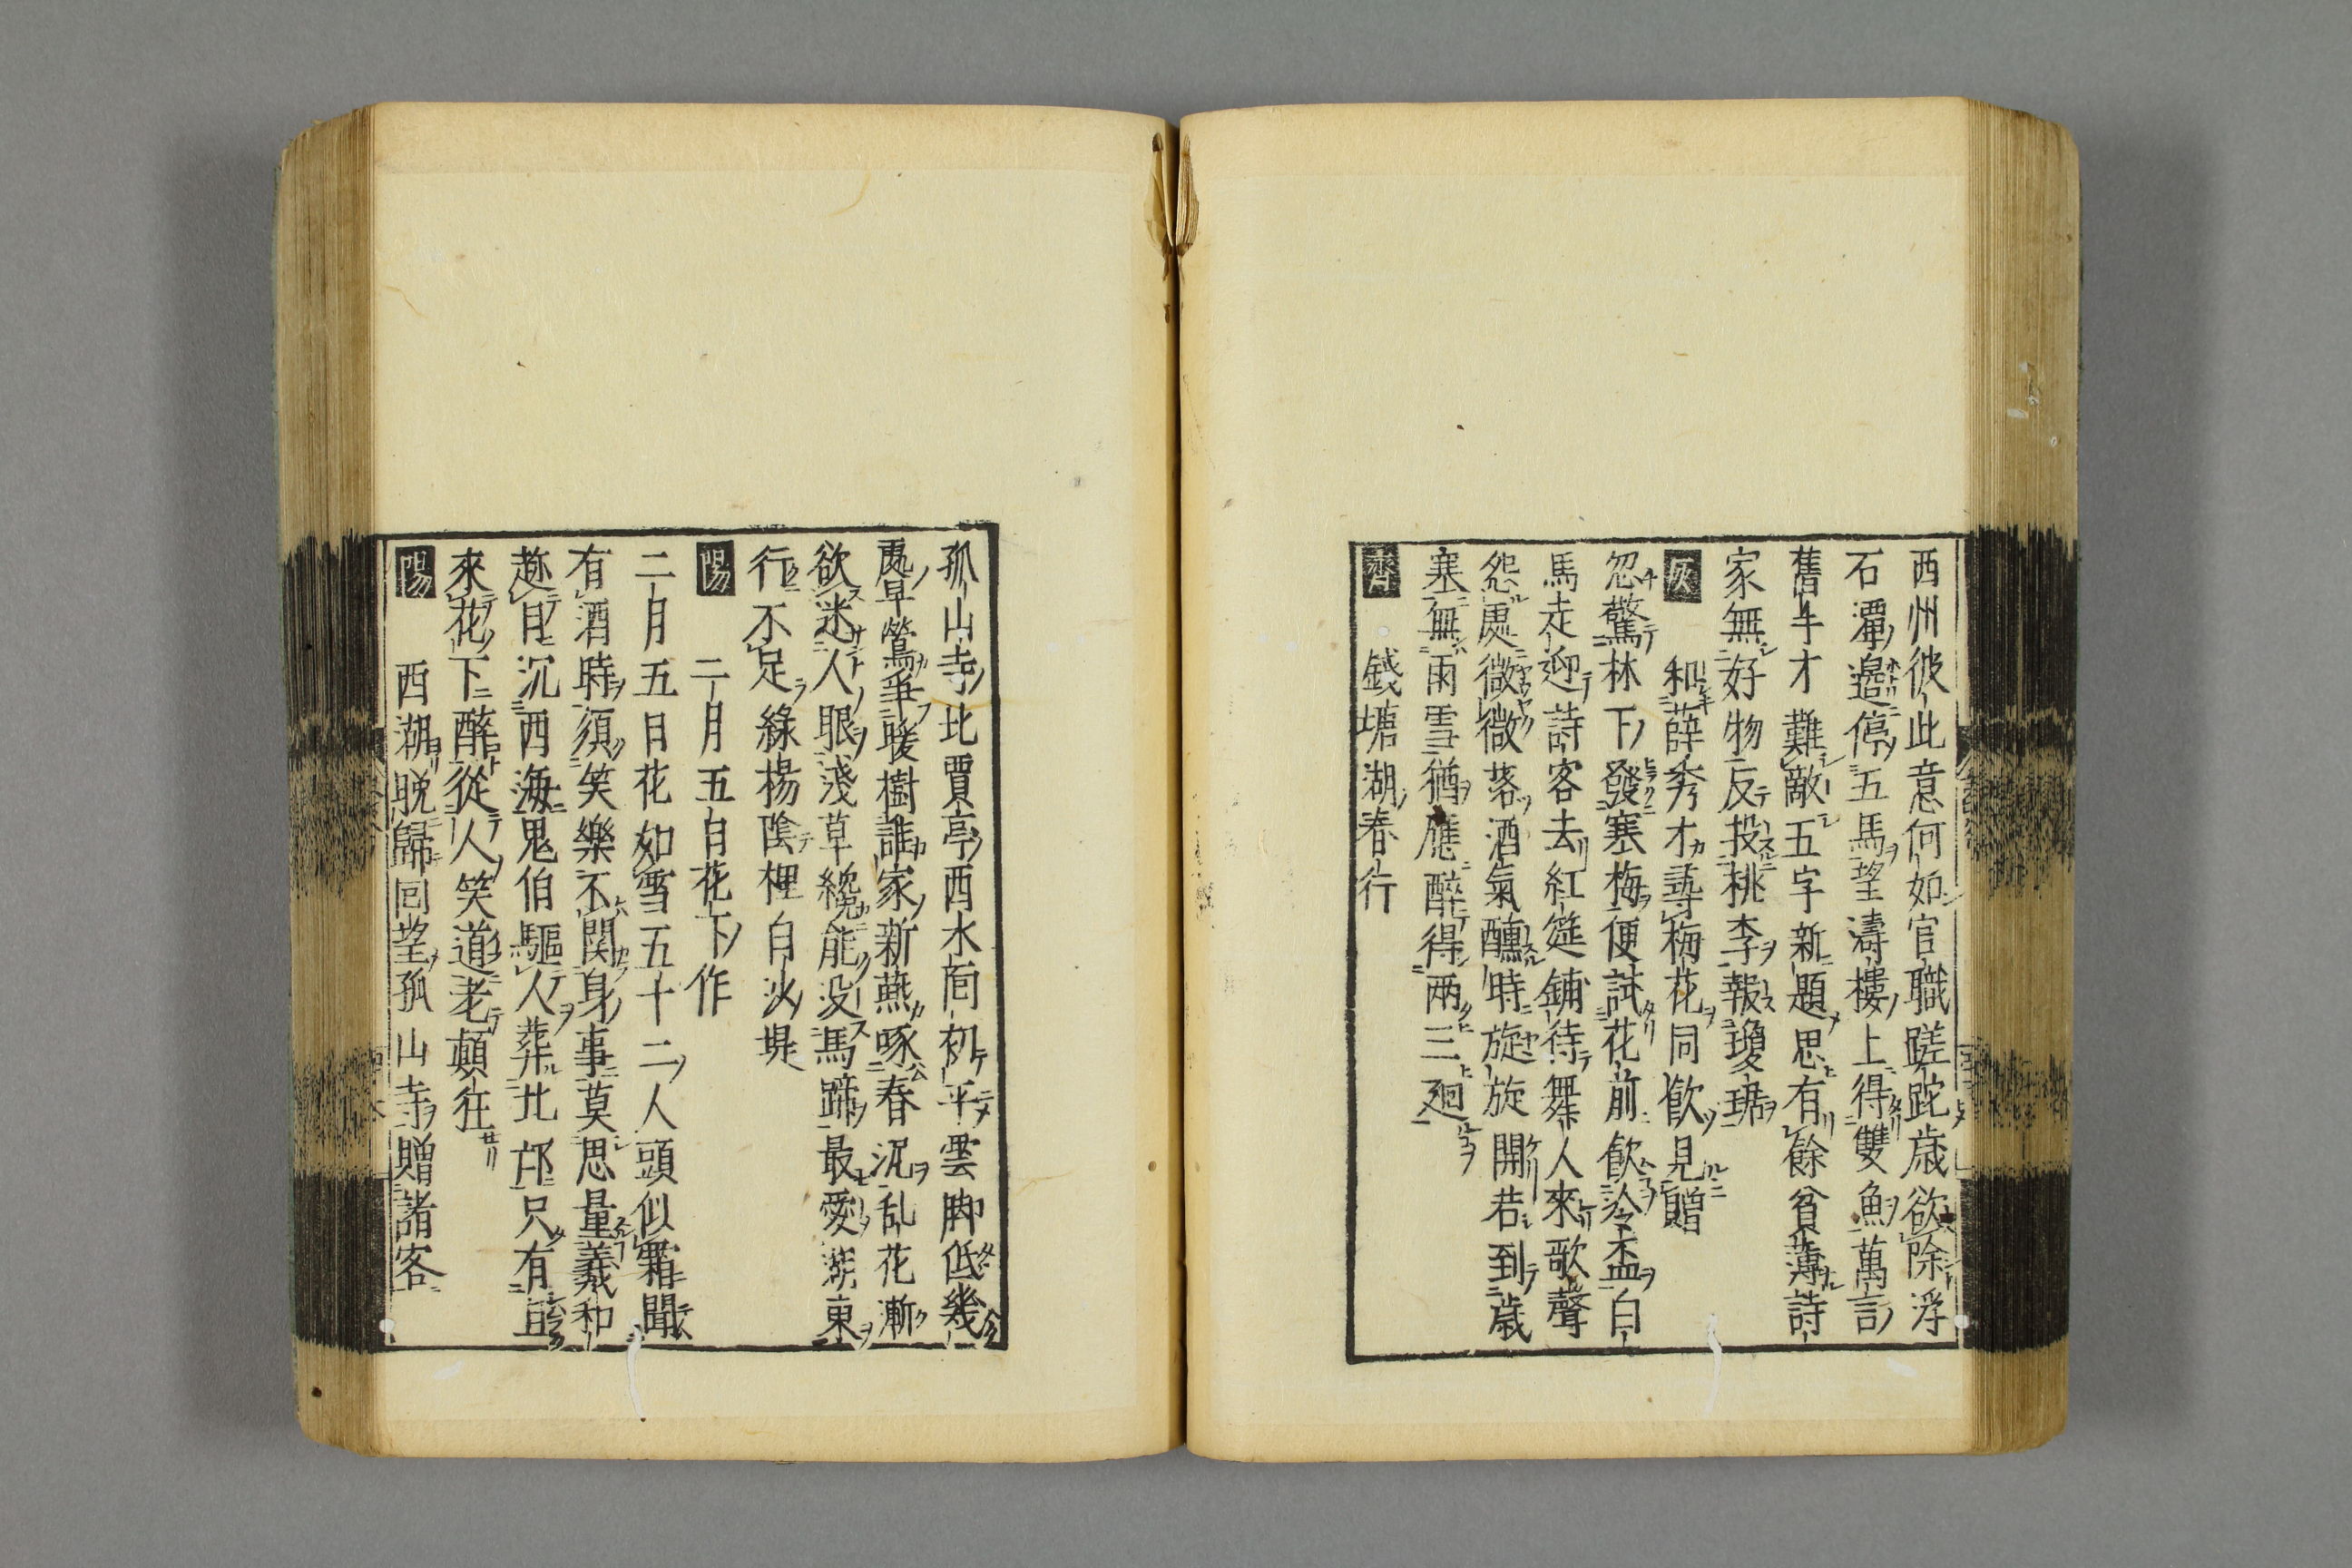 西州彼此意何如官職蹉跎歳欲除浮
石潭邉停五馬望濤樓上得雙魚萬言
舊手才難敵五字新題思有餘貧薄詩
家無好物反投桃李報瓊琚
和薛秀才尋梅花同飲見贈
忽驚林下發寒梅便試花前飲冷盃白
馬走迎詩客去紅筵鋪待舞人來歌聲
怨處微微落酒氣醺時旋旋開若到歳
寒無雨雪猶應醉得兩三廻
齊
錢塘湖春行
孤山寺北賈亭西水面初平雲脚低幾
處早鶯爭暖樹誰家新燕啄春泥乱花漸
欲迷人眼淺草纔能没馬蹄最愛湖東
行不足綠楊陰裡白沙堤
陽
二月五日花下作
二月五日花如雪五十二人頭似霜聞
有酒時須笑樂不関身事莫思量羲和
趂日沉西海鬼伯驅人葬北邙只有且
來花下醉從人笑道老顛狂
陽
西湖晩歸回望孤山寺贈諸客